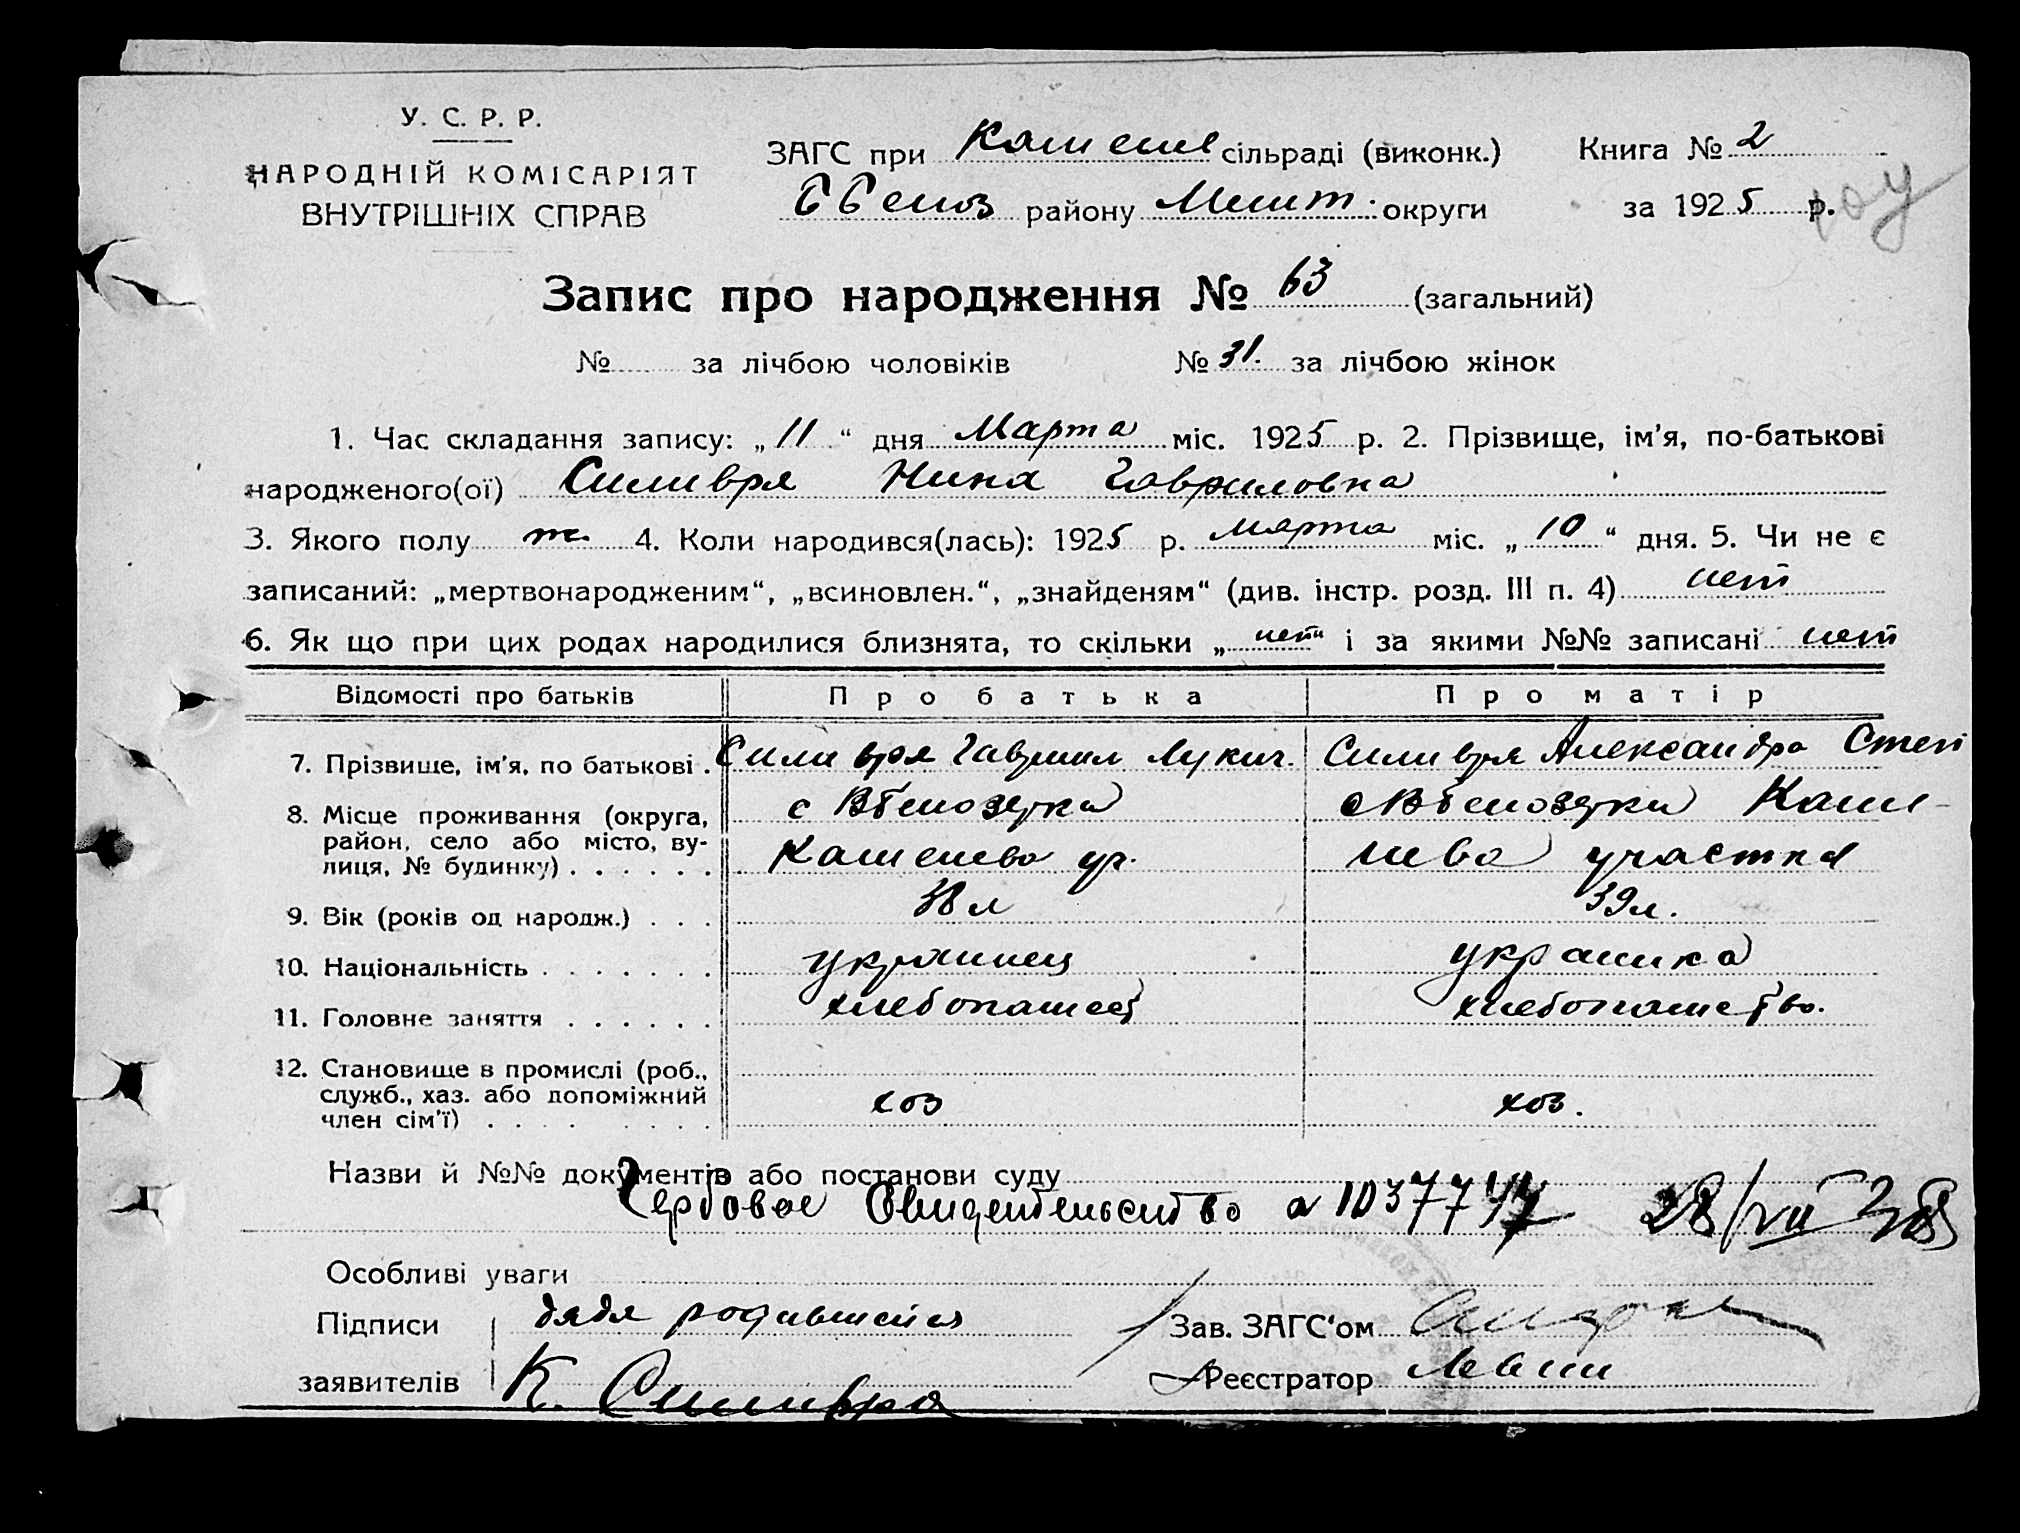 У. С. Р. Р.
НАРОДНІЙ КОМІСАРІЯТ
ВНУТРІШНІХ СПРАВ
ЗАГС при сільраді (виконк.) Книга № 2
району округи за 1925 р.
Запис про народження № 63 (загальний)
№ за лічбою чоловіків № 31. за лічбою жінок
1. Час складання запису: „11“ дня Марта міс. 1925 р. 2. Прізвище, ім'я, по-батькові
народженого(ої) Силивря Нина Гавриловна
3. Якого полу ж. 4. Коли народився(лась): 1925 р. марта міс. „10“ дня. 5. Чи не є
записаний: „мертвонародженим“, „всиновлен.“, „знайденям“ (див. інстр. розд. III п. 4) нет
6. Як що при цих родах народилися близнята, то скільки „нет“ і за якими №№ записані нет
Відомості про батьків Про батька Про матір
7. Прізвище, ім'я, по батькові . Силивря Гавриил Лукич. Силивря Александра Степ
8. Місце проживання (округа, район, село або місто, вулиця, № будинку) с Вбелозерка с Вбелозерка
участка
9. Вік (років од народж.) 38 л 39 л.
10. Національність украинец украинка
11. Головне заняття хлебопашест хлебопашество.
12. Становище в промислі (роб., служб., хаз. або допоміжний член сім'ї) хоз хоз.
Назви й №№ документів або постанови суду
Гербовое Свидетельство 1037747
Особливі уваги
Підписи дядя родившейся Зав. ЗАГС'ом
заявителів К. Силивря Реєстратор